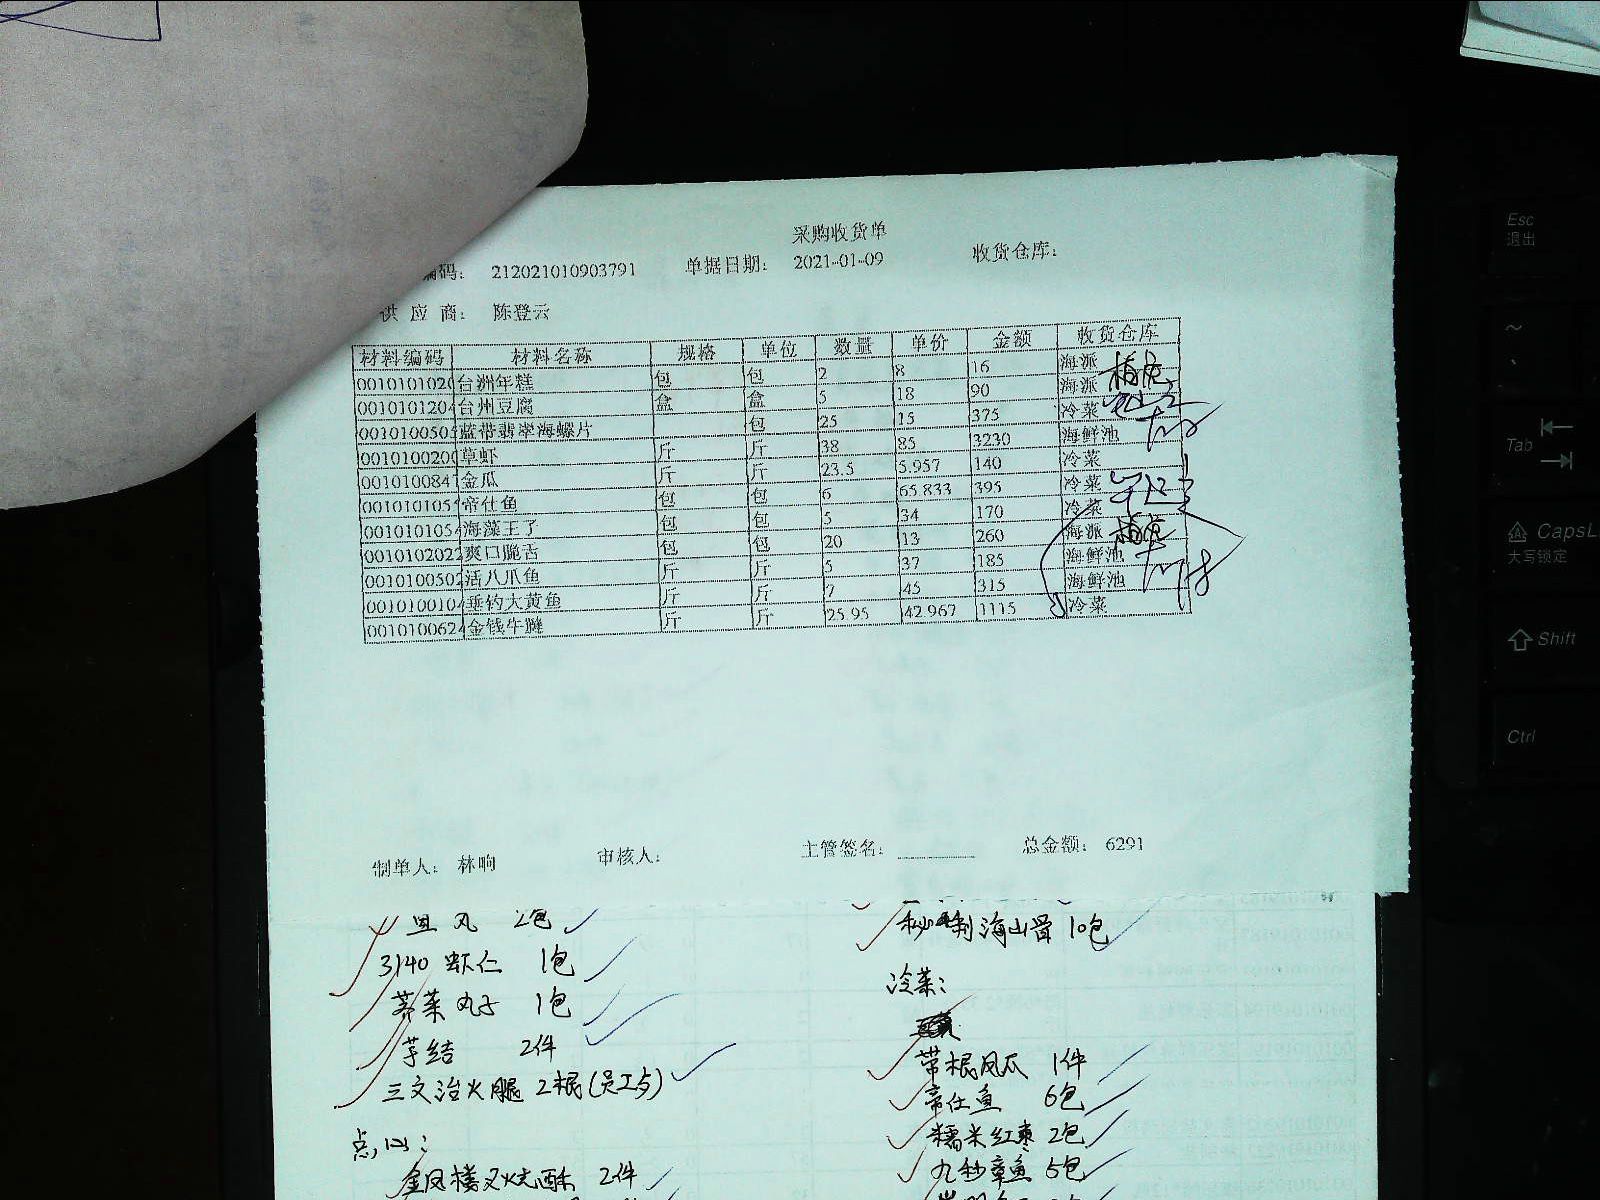 采购收货单
编码: 212021010903791 单据日期: 2021-01-09 收货仓库:
供应商: 陈登云
材料编码 材料名称 规格 单位 数量 单价 金额 收货仓库
0010101020 台洲年糕 包 包 2 8 16 海派
0010101204 台州豆腐 盒 盒 5 18 90 海派
001010050 蓝带翡翠海螺片 包 25 15 375 冷菜
001010020 草虾 斤 斤 38 85 3230 海鲜池
001010084 金瓜 斤 斤 23.5 5.957 140 冷菜
001010105 帝仕鱼 包 包 6 65.833 395 冷菜
001010105 海藻王了 包 包 5 34 170 冷菜
001010202 爽口脆舌 包 包 20 13 260 海派
001010050 活八爪鱼 斤 斤 5 37 185 海鲜池
001010010 垂钓大黄鱼 斤 斤 7 45 315 海鲜池
001010062 金钱牛腱 斤 斤 25.95 42.967 1115 冷菜
制单人: 林响 审核人: 主管签名: 总金额: 6291
丸 2包
3140 虾仁 1包
荠菜丸子 1包
芋结 2件
三文治火腿 2根(员工与)
点心:
金凤楼叉烧酥 2件
秘制海山骨 10包
冷菜:
带根凤爪 1件
帝仕鱼 6包
糯米红枣 2包
九秒章鱼 5包
Esc
退出
~
Tab
CapsL
大写锁定
Shift
Ctrl